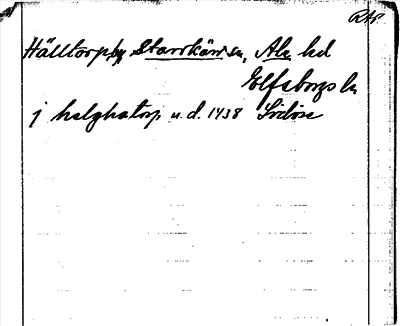 RAP.
Hälltorp by Starrkärr sn, Ale hd
Elfsborgs ln
j helghatorp u.d. 1438 Lödöse